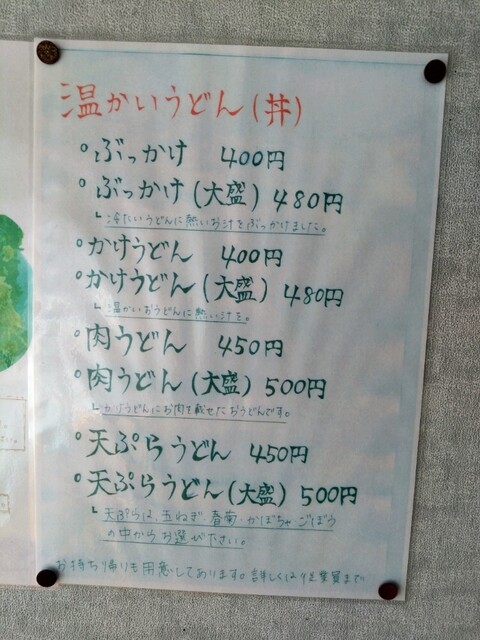 温かいうどん(丼)
°ぶっかけ 400円
°ぶっかけ(大盛) 480円
冷たいうどんに熱いお汁をぶっかけました。
°かけうどん 400円
°かけうどん(大盛) 480円
温かいおうどんに熱い汁を。
°肉うどん 450円
°肉うどん(大盛) 500円
かけうどんにお肉を載せたおうどんです。
°天ぷらうどん 450円
°天ぷらうどん(大盛) 500円
天ぷらは、玉ねぎ・春菊・かぼちゃ・ごぼう
の中からお選び下さい。
お持ち帰りも用意してあります。詳しくは従業員まで